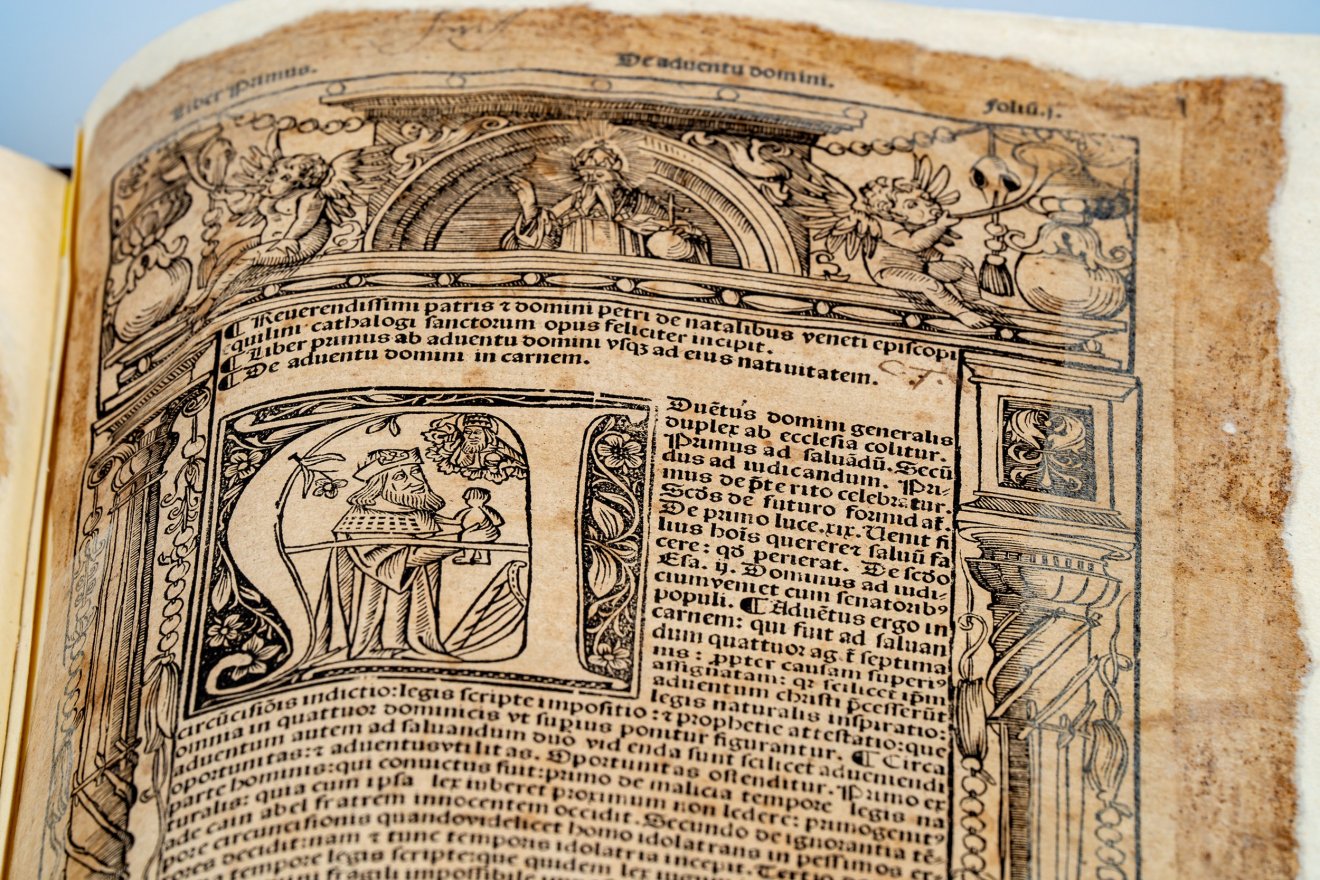 Liber Primus.
De aduentu domini.
Foliũ.j.
¶ Reuerendissimi patris ⁊ domini petri de natalibus veneti episcopi
equilini cathalogi sanctorum opus feliciter incipit.
¶ Liber primus ab aduentu domini vsqꝫ ad eius natiuitatem.
¶ De aduentu domini in carnem.
A
Duẽtus domini generalis
duplex ab ecclesia colitur.
Primus ad saluãdũ. Secũ
dus ad iudicandum. Pri-
mus de p̃terito celebratur.
Scđs de futuro formidat̃.
De primo luce.xix. Uenit fi
lius hoĩs querere⁊ saluũ fa
cere: qđ perierat. De scđo
Esa. ij. Dominus ad iudi-
cium veniet cum senatoribꝰ
populi. ¶ Aduẽtus ergo in
carnem: qui fuit ad saluan
dum quattuor ag.t̃ septima
nis: ꝓpter causam superiꝰ
assignatam: qꝛ scilicet ip̃m
aduentum christi p̃cesserũt
legis naturalis inspiratio:
circũcisiõis indictio:legis scripte impositio:⁊ prophetie attestatio:que
omnia in quattuor dominicis vt supius ponitur figurantur. ¶ Circa
aduentum autem ad saluandum duo vid enda sunt scilicet adueniendi
oportunitas:⁊ aduentusvtilitas. Oportunitas ostenditur. Primo ex
parte hominis:qui conuictus fuit:primo de malicia tempore legis na
turalis: quia cum ipsa lex iuberet proximum non ledere: primogenitꝰ
ade cain abel fratrem innocentem occidit. Secundo de ignorantia tẽ-
pore circuncisionis quandovidelicet homo idolatrans in pessimos er-
rores decidit:nam ⁊ tunc temporis idolatria incepit. Tertio
tempore legis scripte:que quidem lex
fragili impossibile